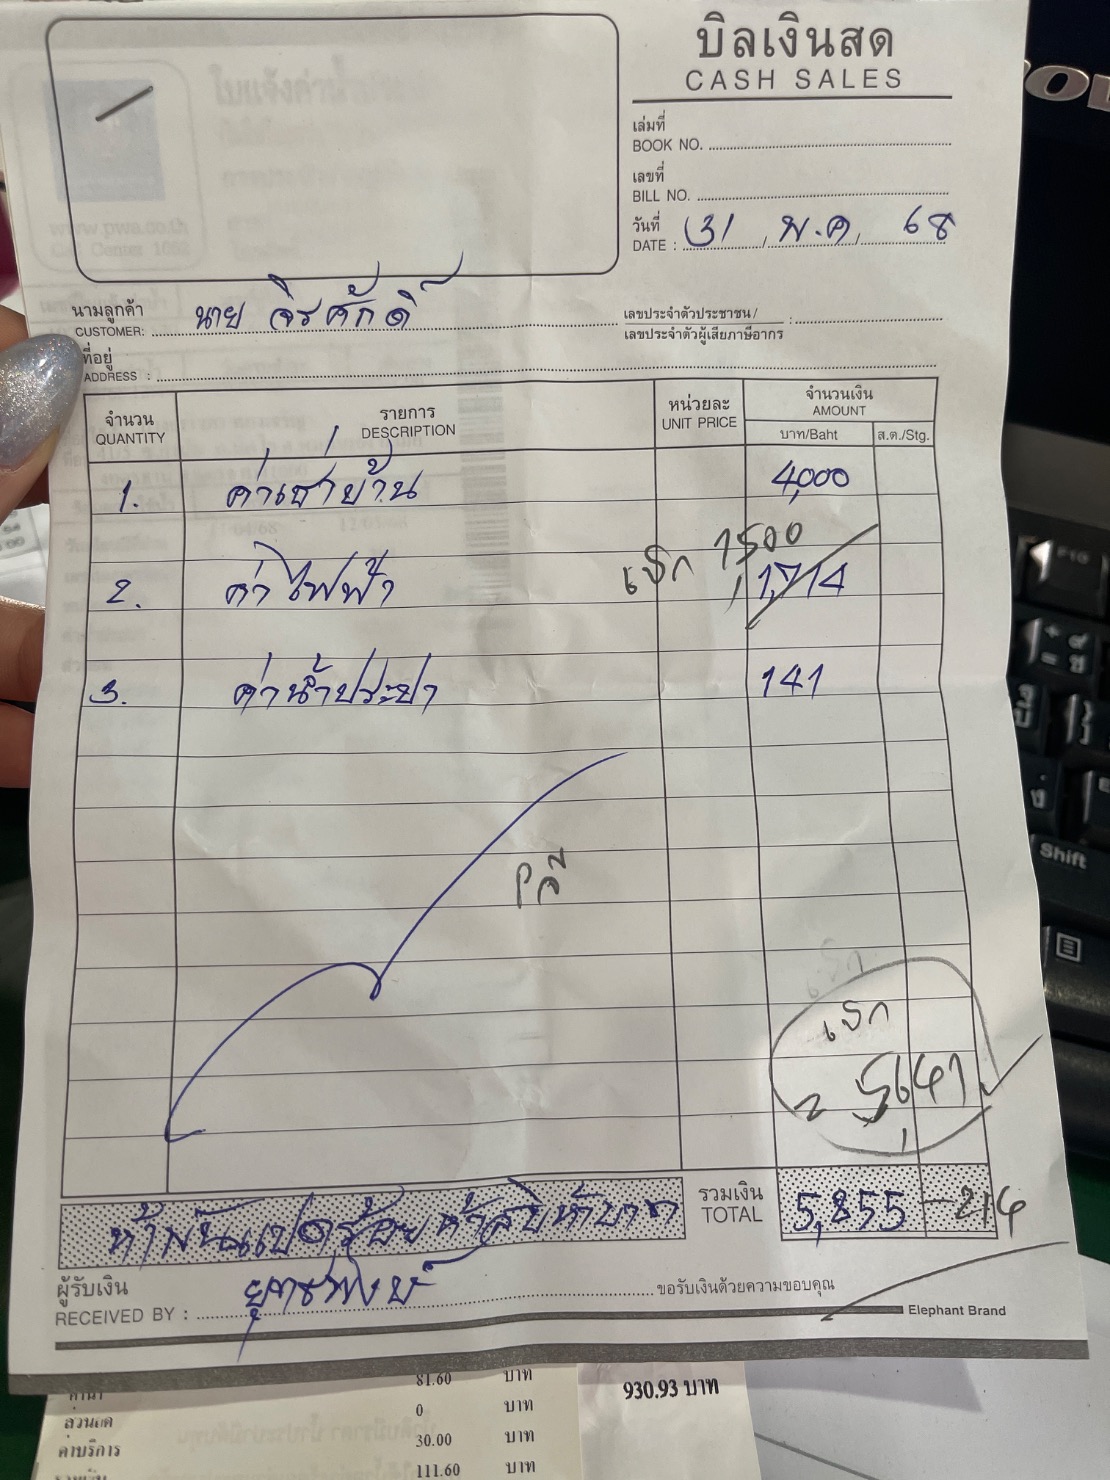 บิลเงินสด
CASH SALES
เล่มที่
BOOK NO.
เลขที่
BILL NO.
วันที่
DATE : 31 / พ.ค / 68
www.pwa.co.th
Call Center 1662
นามลูกค้า
CUSTOMER: นาย จิรศักดิ์
เลขประจำตัวประชาชน /
เลขประจำตัวผู้เสียภาษีอากร :
ที่อยู่
ADDRESS :
จำนวน
QUANTITY
รายการ
DESCRIPTION
หน่วยละ
UNIT PRICE
จำนวนเงิน
AMOUNT
บาท/Baht
ส.ต./Stg.
1. ค่าเช่าบ้าน 4,000
เบิก 1,500
2. ค่าไฟฟ้า 1,714
3. ค่าน้ำประปา 141
เบิก
5,641
ห้าพันแปดร้อยห้าสิบห้าบาท
รวมเงิน
TOTAL
5,855 -214
ผู้รับเงิน
RECEIVED BY :
ขอรับเงินด้วยความขอบคุณ
Elephant Brand
81.60 บาท
ส่วนลด 0 บาท
ค่าบริการ 30.00 บาท
111.60 บาท
930.93 บาท
Shift